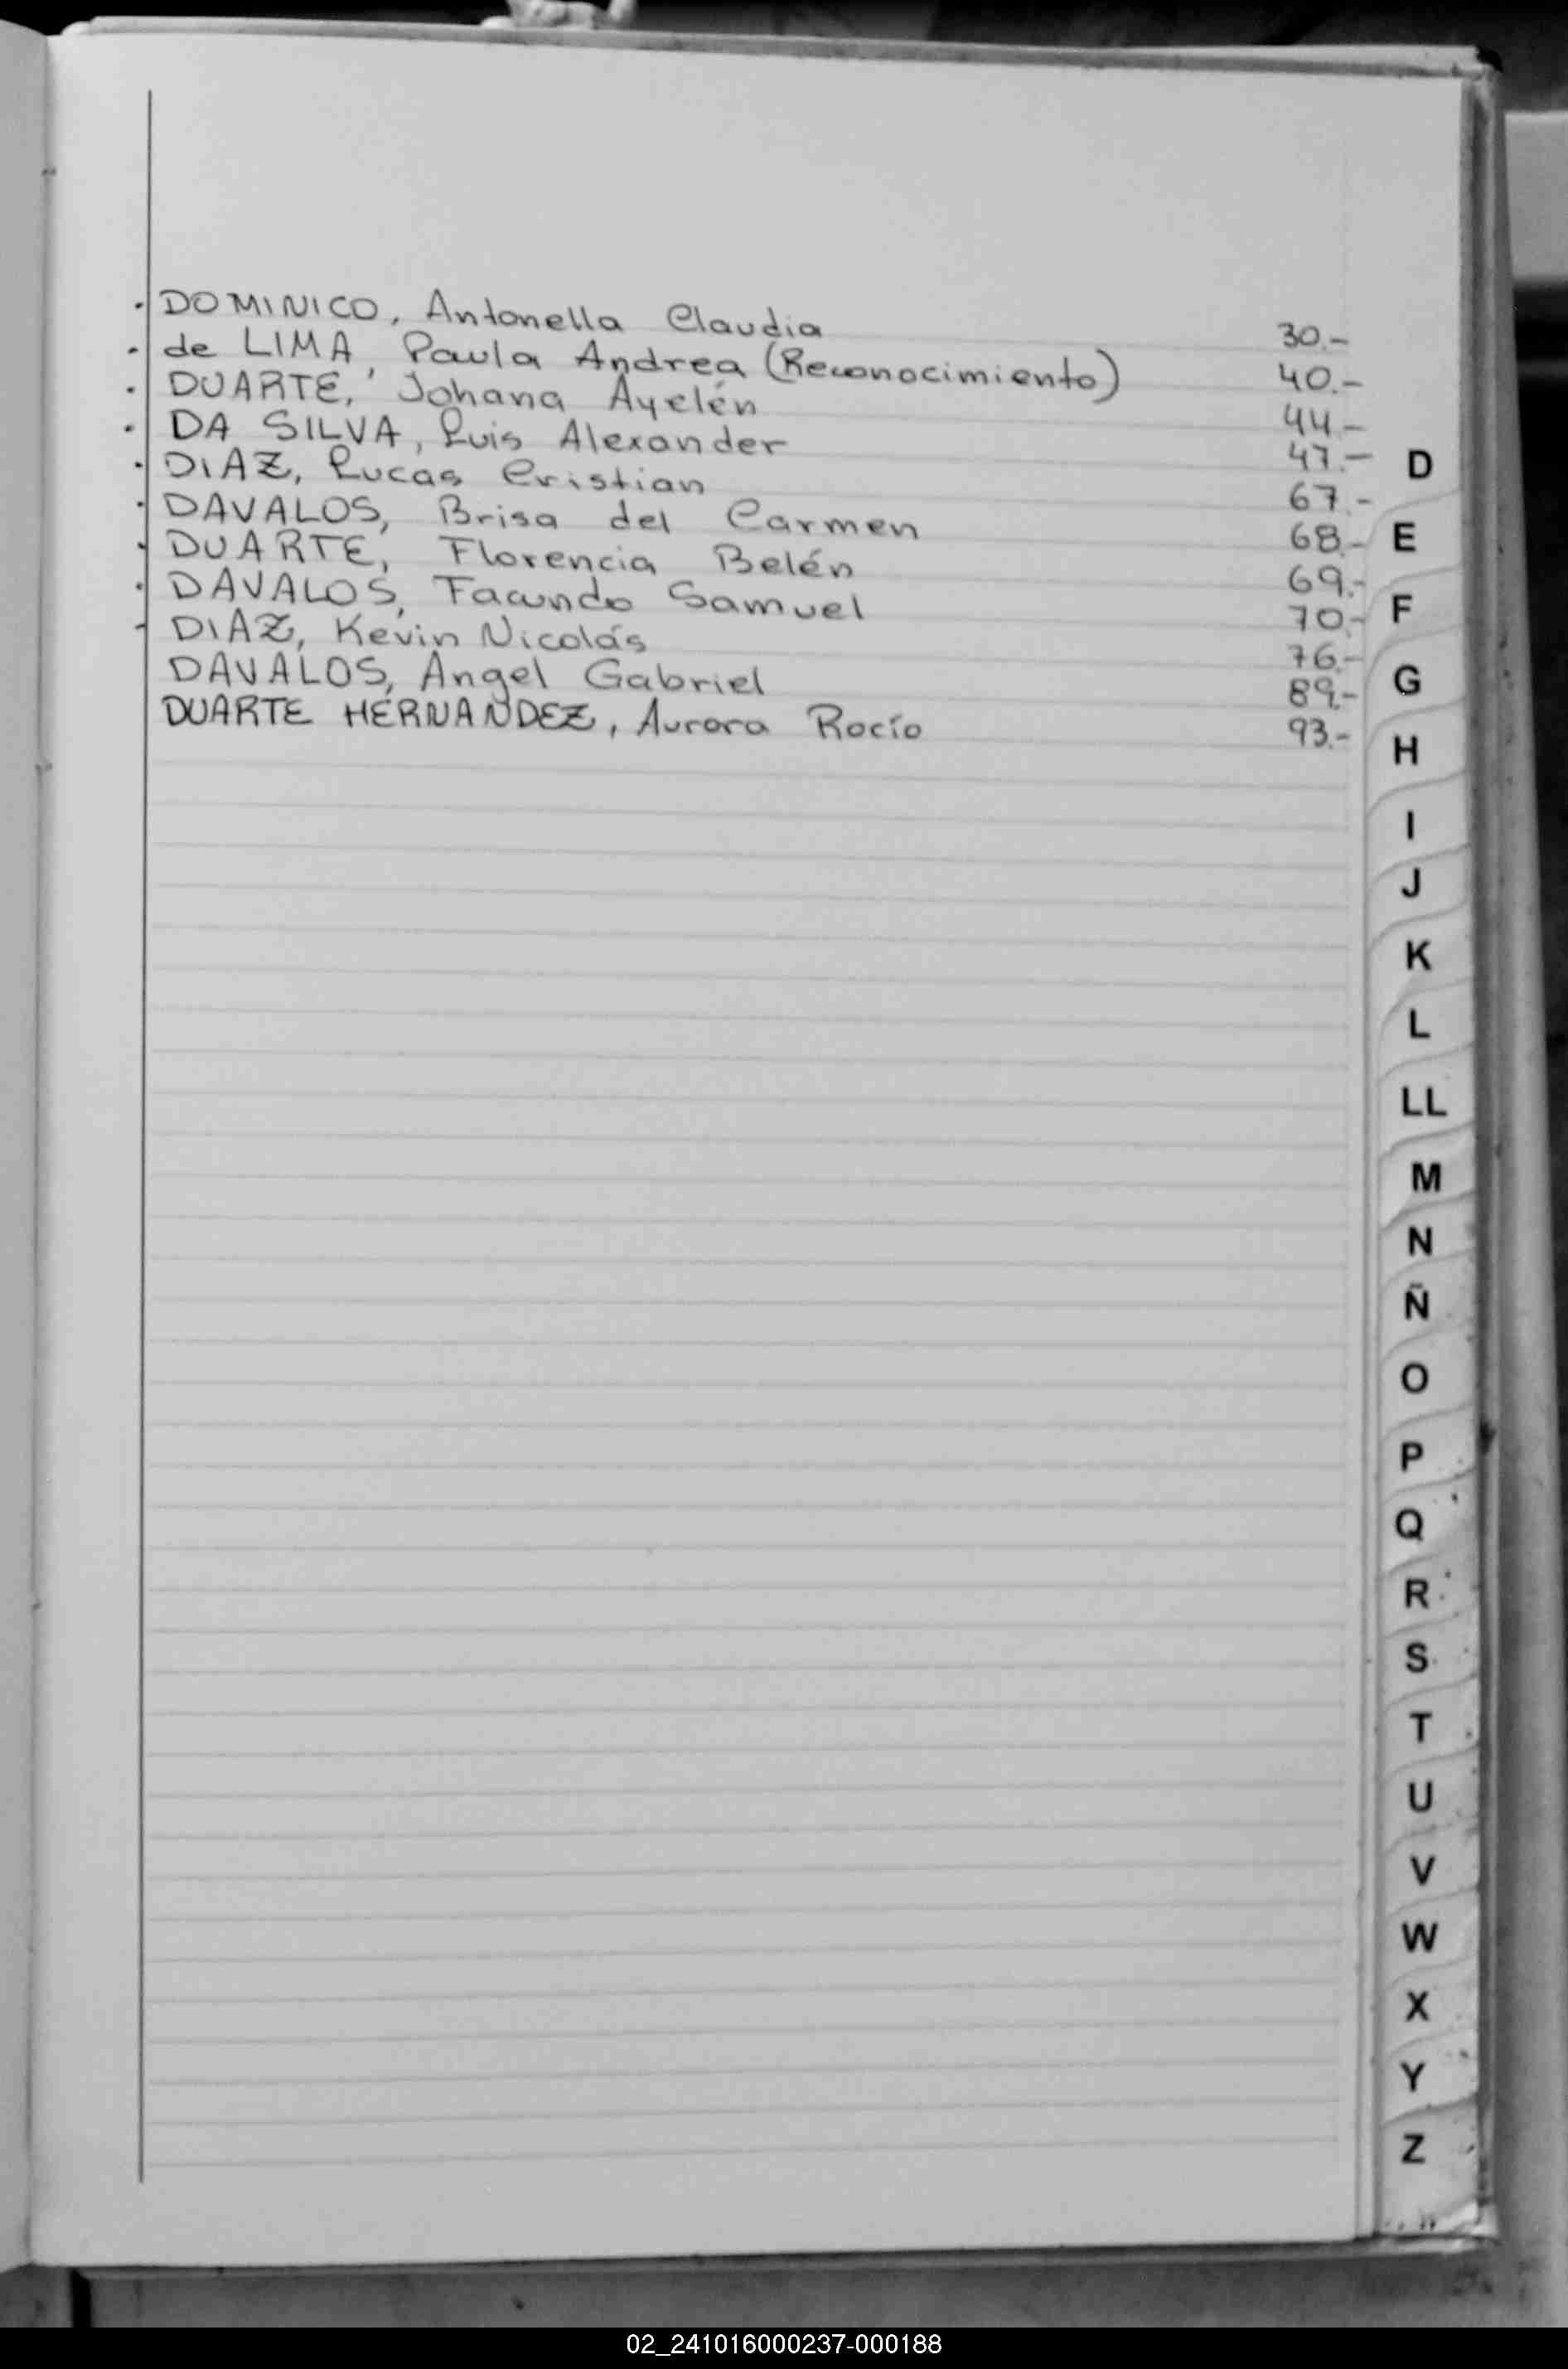 · DOMINICO, Antonella Claudia 30.-
· de LIMA, Paula Andrea (Reconocimiento) 40.-
· DUARTE, Johana Ayelén 44.-
· DA SILVA, Luis Alexander 47.-
· DIAZ, Lucas Cristian 67.-
· DAVALOS, Brisa del Carmen 68.-
· DUARTE, Florencia Belén 69.-
· DAVALOS, Facundo Samuel 70.-
- DIAZ, Kevin Nicolás 76.-
DAVALOS, Angel Gabriel 89.-
DUARTE HERNANDEZ, Aurora Rocío 93.-
D
E
F
G
H
I
J
K
L
LL
M
N
Ñ
O
P
Q
R
S
T
U
V
W
X
Y
Z
02_241016000237-000188